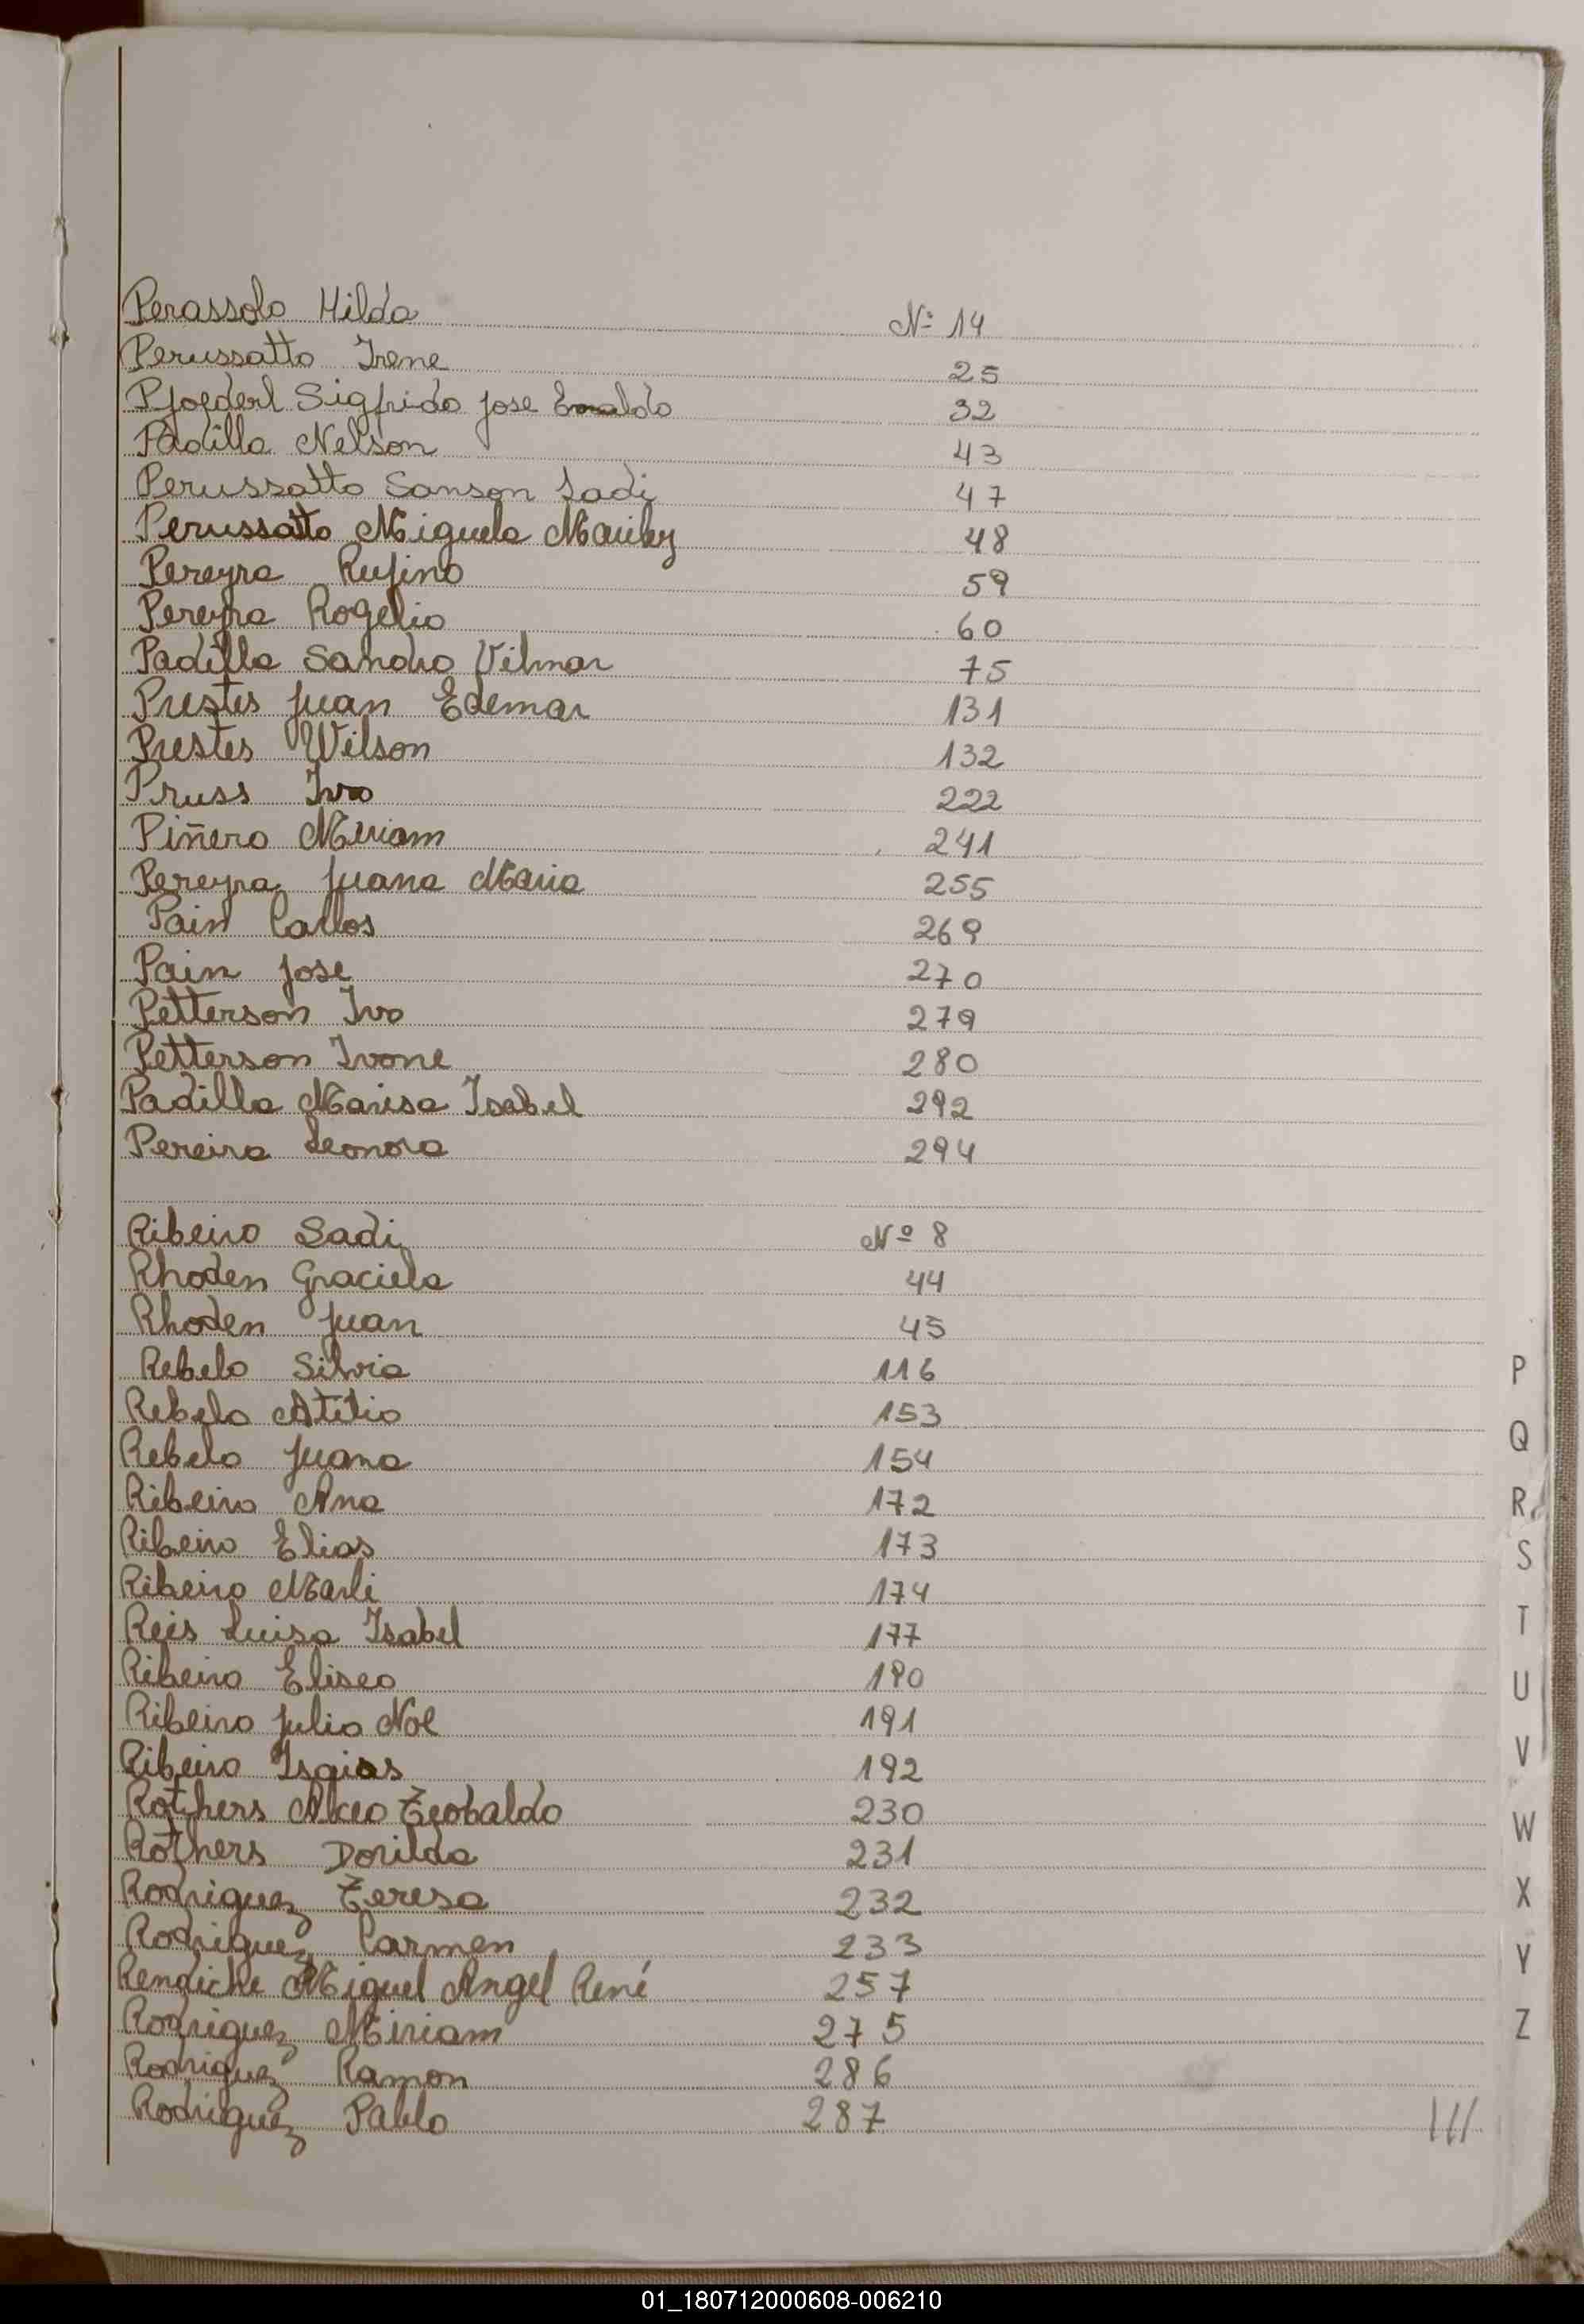 Perassolo Hilda Nº 14
Perussatto Irene 25
Pfoederl Sigfrido Jose 32
Padilla Nelson 43
Perussatto Sanson Sadi 47
Perussatto Miguela 48
Pereyra Rufino 59
Pereyra Rogelio 60
Padilla Sandro Vilmar 75
Prestes Juan Edemar 131
Prestes Wilson 132
Pruss Ivo 222
Piñero Miriam 241
Pereyra Juana Maria 255
Pain Carlos 269
Pain Jose 270
Petterson Ivo 279
Petterson Ivone 280
Padilla Marisa Isabel 292
Pereira Leonora 294
Ribeiro Sadi Nº 8
Rhoden Graciela 44
Rhoden Juan 45
Rebelo Silvia 116
Rebelo Atilio 153
Rebelo Juana 154
Ribeiro Ana 172
Ribeiro Elias 173
Ribeiro Marli 174
Reis Luisa Isabel 177
Ribeiro Eliseo 190
Ribeiro Julio Noe 191
Ribeiro Isaias 192
Rothers Alceo Teobaldo 230
Rothers Dorilda 231
Rodriguez Teresa 232
Rodriguez Carmen 233
Rendiche Miguel Angel René 257
Rodriguez Miriam 275
Rodriguez Ramon 286
Rodriguez Pablo 287
///
P
Q
R
S
T
U
V
W
X
Y
Z
01_180712000608-006210